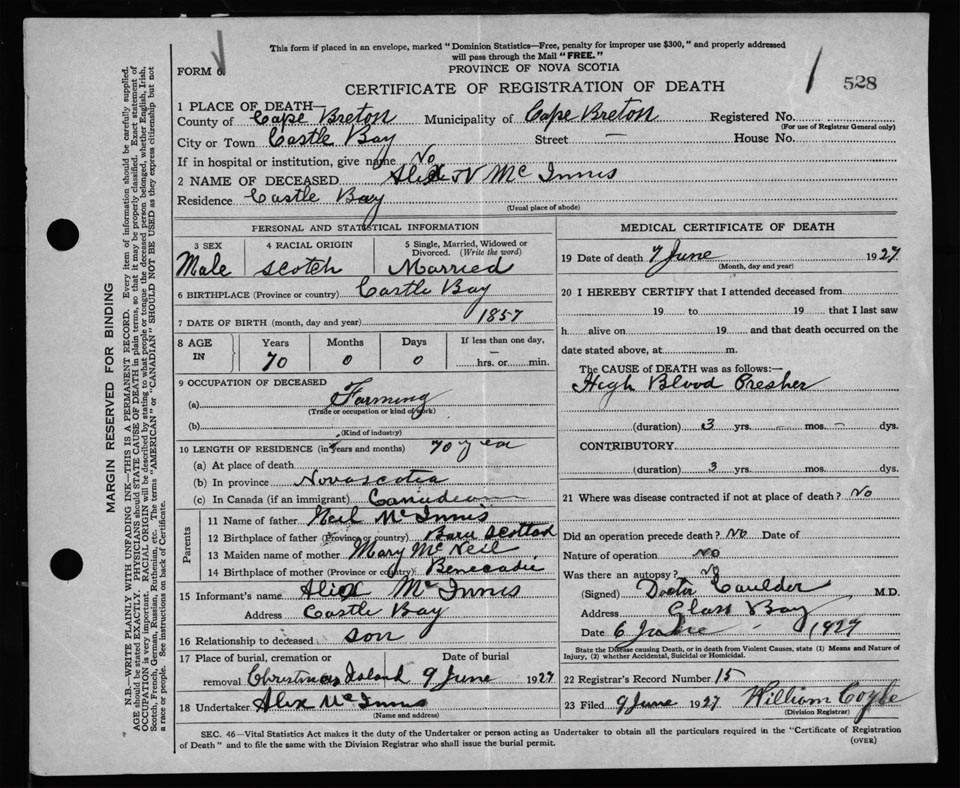 This form if placed in an envelope, marked "Dominion Statistics—Free, penalty for improper use $300," and properly addressed
will pass through the Mail "FREE."
FORM 6.
PROVINCE OF NOVA SCOTIA
CERTIFICATE OF REGISTRATION OF DEATH
528
1 PLACE OF DEATH—
County of Cape Breton Municipality of Cape Breton Registered No.
(For use of Registrar General only)
City or Town Castle Bay Street — House No.
If in hospital or institution, give name No
2 NAME OF DECEASED Alix N McInnis
Residence Castle Bay
(Usual place of abode)
PERSONAL AND STATISTICAL INFORMATION
3 SEX 4 RACIAL ORIGIN 5 Single, Married, Widowed or
Divorced. (Write the word)
Male Scotch Married
6 BIRTHPLACE (Province or country) Castle Bay
7 DATE OF BIRTH (month, day and year) 1857
8 AGE IN Years Months Days If less than one day,
70 0 0 hrs. or min.
9 OCCUPATION OF DECEASED
(a) Farming
(Trade or occupation or kind of work)
(b)
(Kind of industry)
10 LENGTH OF RESIDENCE (in years and months) 70 year
(a) At place of death
(b) In province Novascotia
(c) In Canada (if an immigrant) Canadean
Parents
11 Name of father Neil McInnis
12 Birthplace of father (Province or country) Bara Scotlan
13 Maiden name of mother Mary McNeil
14 Birthplace of mother (Province or country) Benecadie
15 Informant's name Alix McInnis
Address Castle Bay
16 Relationship to deceased son
17 Place of burial, cremation or Date of burial
removal Christmas Island 9 June 1927
18 Undertaker Alex McInnis
(Name and address)
MEDICAL CERTIFICATE OF DEATH
19 Date of death 7 June 1927
(Month, day and year)
20 I HEREBY CERTIFY that I attended deceased from
19 to 19 that I last saw
h alive on 19 and that death occurred on the
date stated above, at m.
The CAUSE of DEATH was as follows:—
High Blood Presher
(duration) 3 yrs. — mos. — dys.
CONTRIBUTORY
(duration) 3 yrs. mos. dys.
21 Where was disease contracted if not at place of death? No
Did an operation precede death? No Date of
Nature of operation No
Was there an autopsy? No
(Signed) Docter Caulder M.D.
Address Glass Bay
Date 6 June - 1927
State the Disease causing Death, or in death from Violent Causes, state (1) Means and Nature of
Injury, (2) whether Accidental, Suicidal or Homicidal.
22 Registrar's Record Number 15
23 Filed 9 June 1927 William Coyle
(Division Registrar)
SEC. 46—Vital Statistics Act makes it the duty of the Undertaker or person acting as Undertaker to obtain all the particulars required in the "Certificate of Registration
of Death" and to file the same with the Division Registrar who shall issue the burial permit.
(OVER)
MARGIN RESERVED FOR BINDING
N.B.—WRITE PLAINLY WITH UNFADING INK—THIS IS A PERMANENT RECORD. Every item of information should be carefully supplied.
AGE should be stated EXACTLY. PHYSICIANS should STATE CAUSE OF DEATH in plain terms, so that it may be properly classified. Exact statement of
OCCUPATION is very important. RACIAL ORIGIN will be described by stating to what people or tongue the deceased person belonged, whether English, Irish,
Scotch, French, German, Russian, Ruthenian, etc. The terms "AMERICAN" or "CANADIAN" SHOULD NOT BE USED as they express citizenship but not
a race or people. See instructions on back of Certificate.